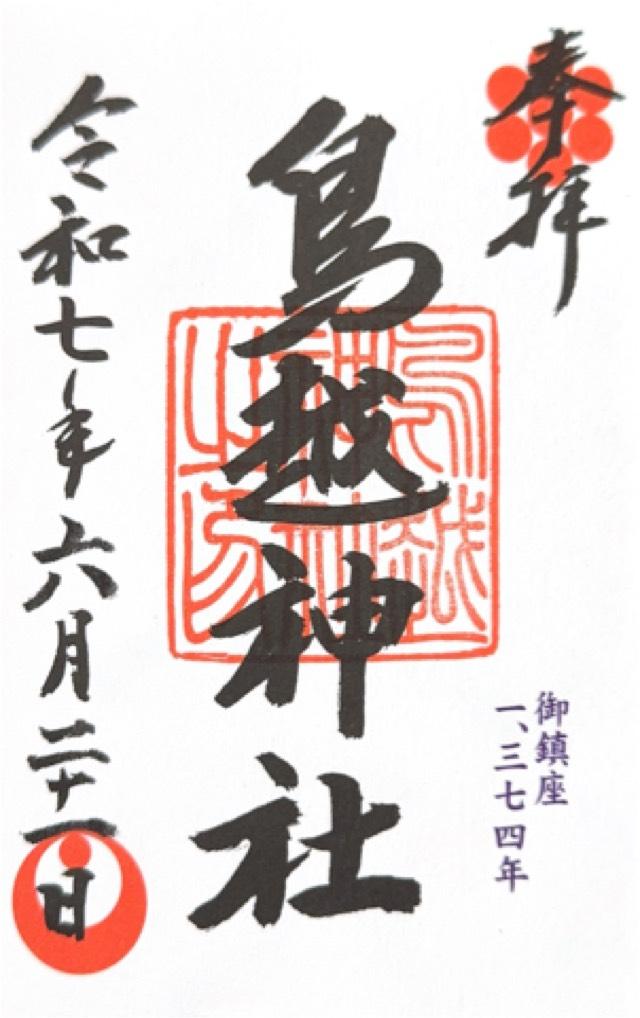 奉拝
御鎮座
一、三七四年
鳥越神社
令和七年六月二十一日